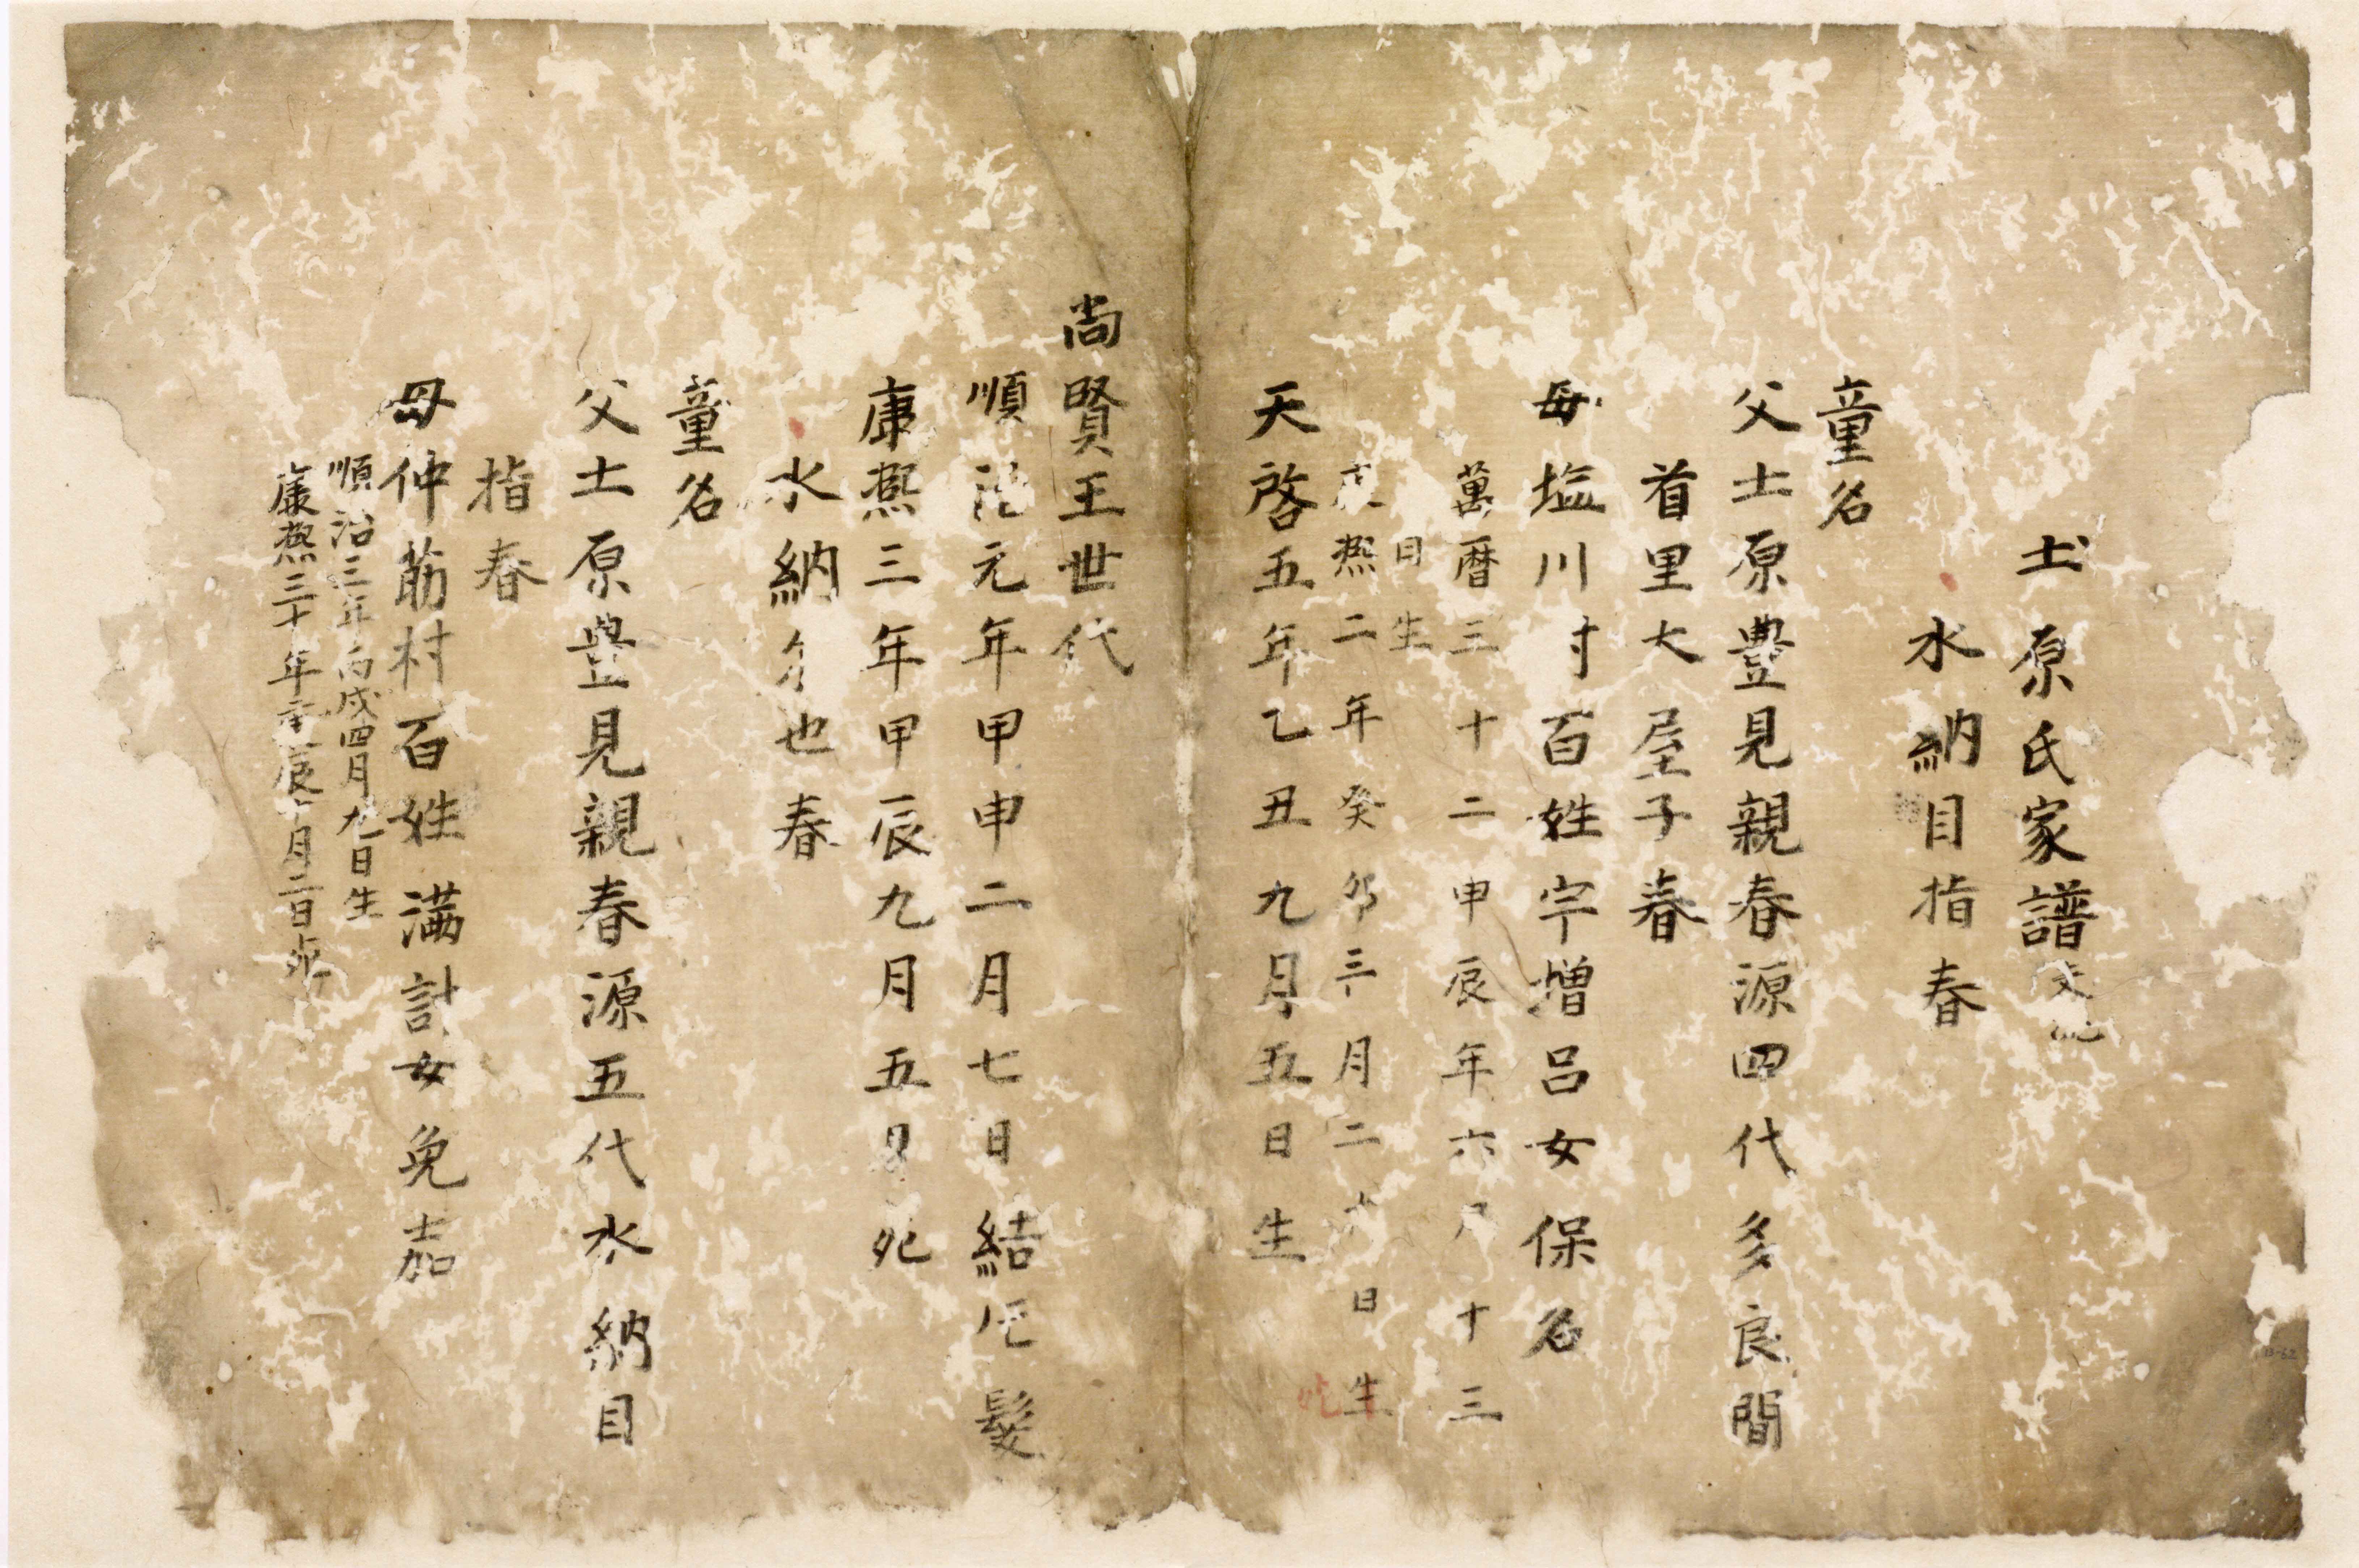 土原氏家譜支流
水納目指春
童名
父土原豊見親春源四代多良間
首里大屋子春
母塩川村百姓宇増呂女保名
萬暦三十二申辰年六月十三
日生
康熙二年癸卯三月二 日生
天啓五年乙丑九月五日生
尚賢王世代
順治元年甲申二月七日結 髮
康熙三年甲辰九月五日死
水納 也春
童名
父土原豊見親春源五代水納目
指春
母仲筋村百姓満計女免嘉
順治三年丙戌四月九日生
康熙三十年 辰 月二日卒